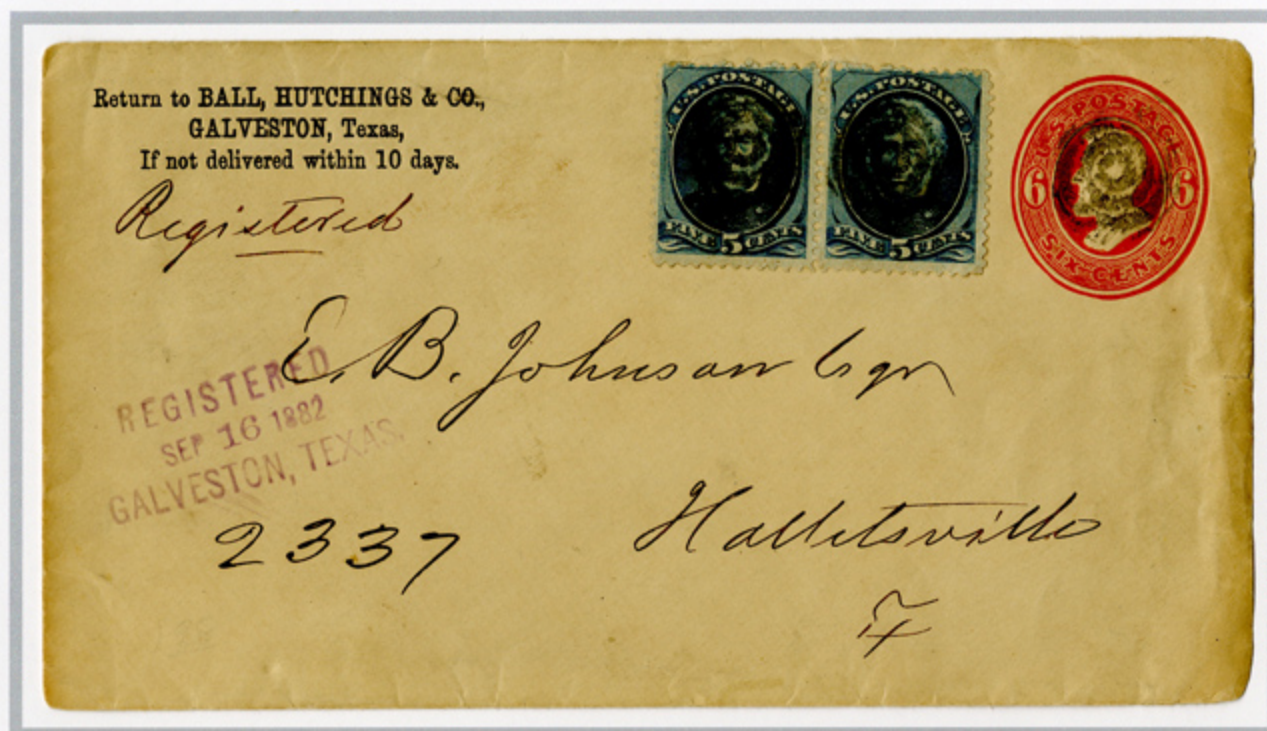 Return to BALL, HUTCHINGS & CO.,
GALVESTON, Texas,
If not delivered within 10 days.
Registered
U.S. POSTAGE
FIVE 5 CENTS
U.S. POSTAGE
FIVE 5 CENTS
U.S. POSTAGE
6 6
SIX CENTS
E. B. Johnson Esqr
REGISTERED
SEP 16 1882
GALVESTON, TEXAS.
2337
Halletsville
Tx